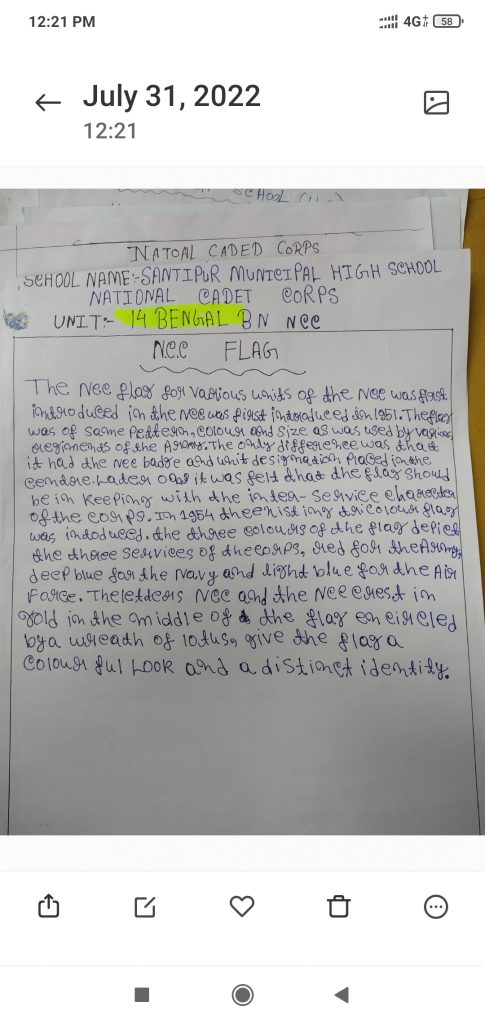 12:21 PM
4G 58
July 31, 2022
12:21
NATOAL CADED CORPS
SCHOOL NAME:-SANTIPUR MUNICIPAL HIGH SCHOOL
NATIONAL CADET CORPS
UNIT:- 14 BENGAL BN NCC
N.C.C FLAG
The Nee flag for various units of the Nee was first
introduced in the Nee was first introduced in 1951. The flag
was of same Pettern, colour and size as was used by various
regionends of the Army. The only difference was that
it had the Nee badge and unit designadion Placed in the
cendre. Later on it was felt that the flag should
be in Keeping with the inter- Service charecter
of the corps. In 1954 the enisting tricolour flag
was indoduced. the three colours of the flag depict
the three Services of the corps, red for the Army,
deep blue for the Navy and light blue for the Air
Force. The letders NCC and the Nee crest in
gold in the middle of the flag encircled
by a wreath of lotus, give the flag a
Colour ful Look and a distinct identity.